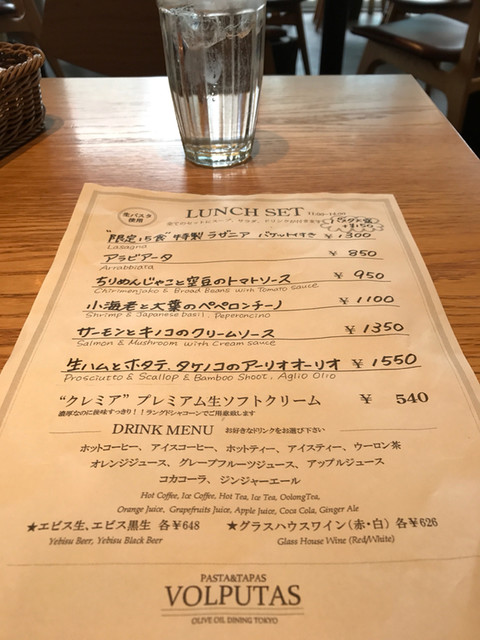 生パスタ
使用
LUNCH SET 11:00~14:00
全てのセットにスープ、サラダ、ドリンクが付きます
バスケット
+¥150
"限定15食" 特製 ラザニア バゲット付き ¥1300
Lasagna
アラビアータ ¥ 850
Arrabbiata
ちりめんじゃこと空豆のトマトソース ¥ 950
Chirimenjako & Broad Beans with Tomato sauce
小海老と大葉のペペロンチーノ ¥1100
Shrimp & Japanese basil, Peperoncino
サーモンとキノコのクリームソース ¥1350
Salmon & Mushroom with Cream sauce
生ハムとホタテ、タケノコのアーリオオーリオ ¥1550
Prosciutto & Scallop & Bamboo Shoot, Aglio Olio
"クレミア" プレミアム生ソフトクリーム ¥ 540
濃厚なのに後味すっきり!!ラングドシャコーンでご用意致します
DRINK MENU お好きなドリンクをお選び下さい
ホットコーヒー、アイスコーヒー、ホットティー、アイスティー、ウーロン茶
オレンジジュース、グレープフルーツジュース、アップルジュース
コカコーラ、ジンジャーエール
Hot Coffee, Ice Coffee, Hot Tea, Ice Tea, OolongTea,
Orange Juice, Grapefruits Juice, Apple Juice, Coca Cola, Ginger Ale
★エビス生、エビス黒生 各¥648 ★グラスハウスワイン(赤・白) 各¥626
Yebisu Beer, Yebisu Black Beer Glass House Wine (Red/White)
PASTA&TAPAS
VOLPUTAS
OLIVE OIL DINING TOKYO